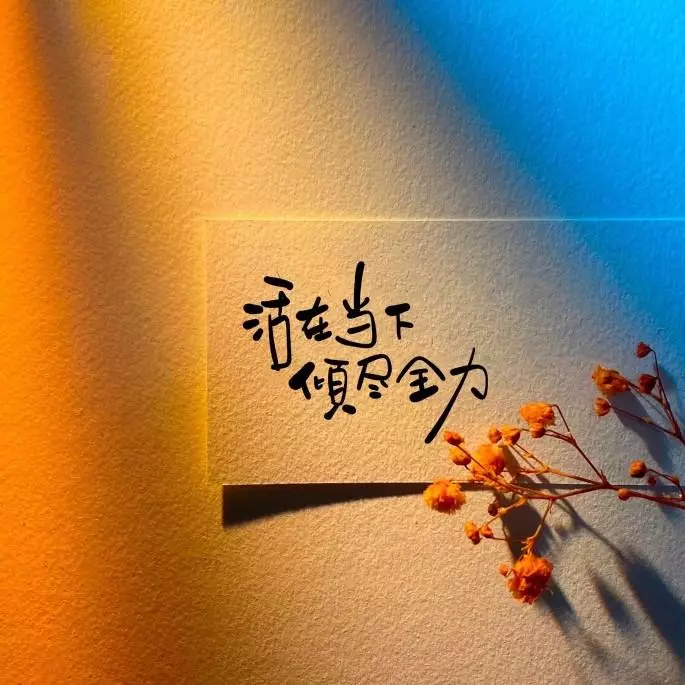 活在当下
倾尽全力